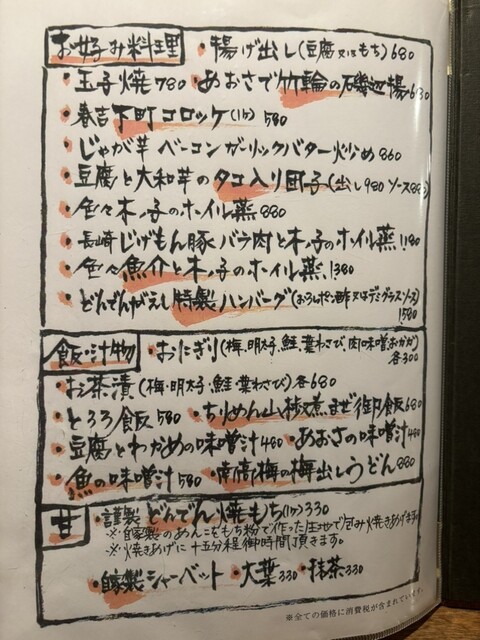 お好み料理 ・揚げ出し(豆腐又はもち)680
・玉子焼780 ・あおさで竹輪の磯辺揚630
・春吉下町コロッケ(1ヶ)580
・じゃが芋ベーコンガーリックバター炒め860
・豆腐と大和芋のタコ入り団子(出し980 ソース880)
・色々木の子のホイル蒸880
・長崎じげもん豚バラ肉と木の子のホイル蒸1180
・色々魚介と木の子のホイル蒸1380
・どんでんがえし特製ハンバーグ(おろしポン酢又はデミグラスソース)
1580
飯・汁物 ・おにぎり(梅、明太子、鮭、葉わさび、肉味噌、おかか)
各300
・お茶漬(梅・明太子、鮭・葉わさび)各680
・とろろ飯580 ・ちりめん山椒煮まぜ御飯680
・豆腐とわかめの味噌汁480 ・あおさの味噌汁480
・魚の味噌汁580 ・南高梅の梅出しうどん880
甘 ・謹製どんでん焼もち(1ヶ)330
※自家製のあんこをもち粉で作った生地で包み焼きあげます。
※焼きあげに十五分程御時間頂きます。
・自家製シャーベット ・大葉330 ・抹茶330
※全ての価格に消費税が含まれています。